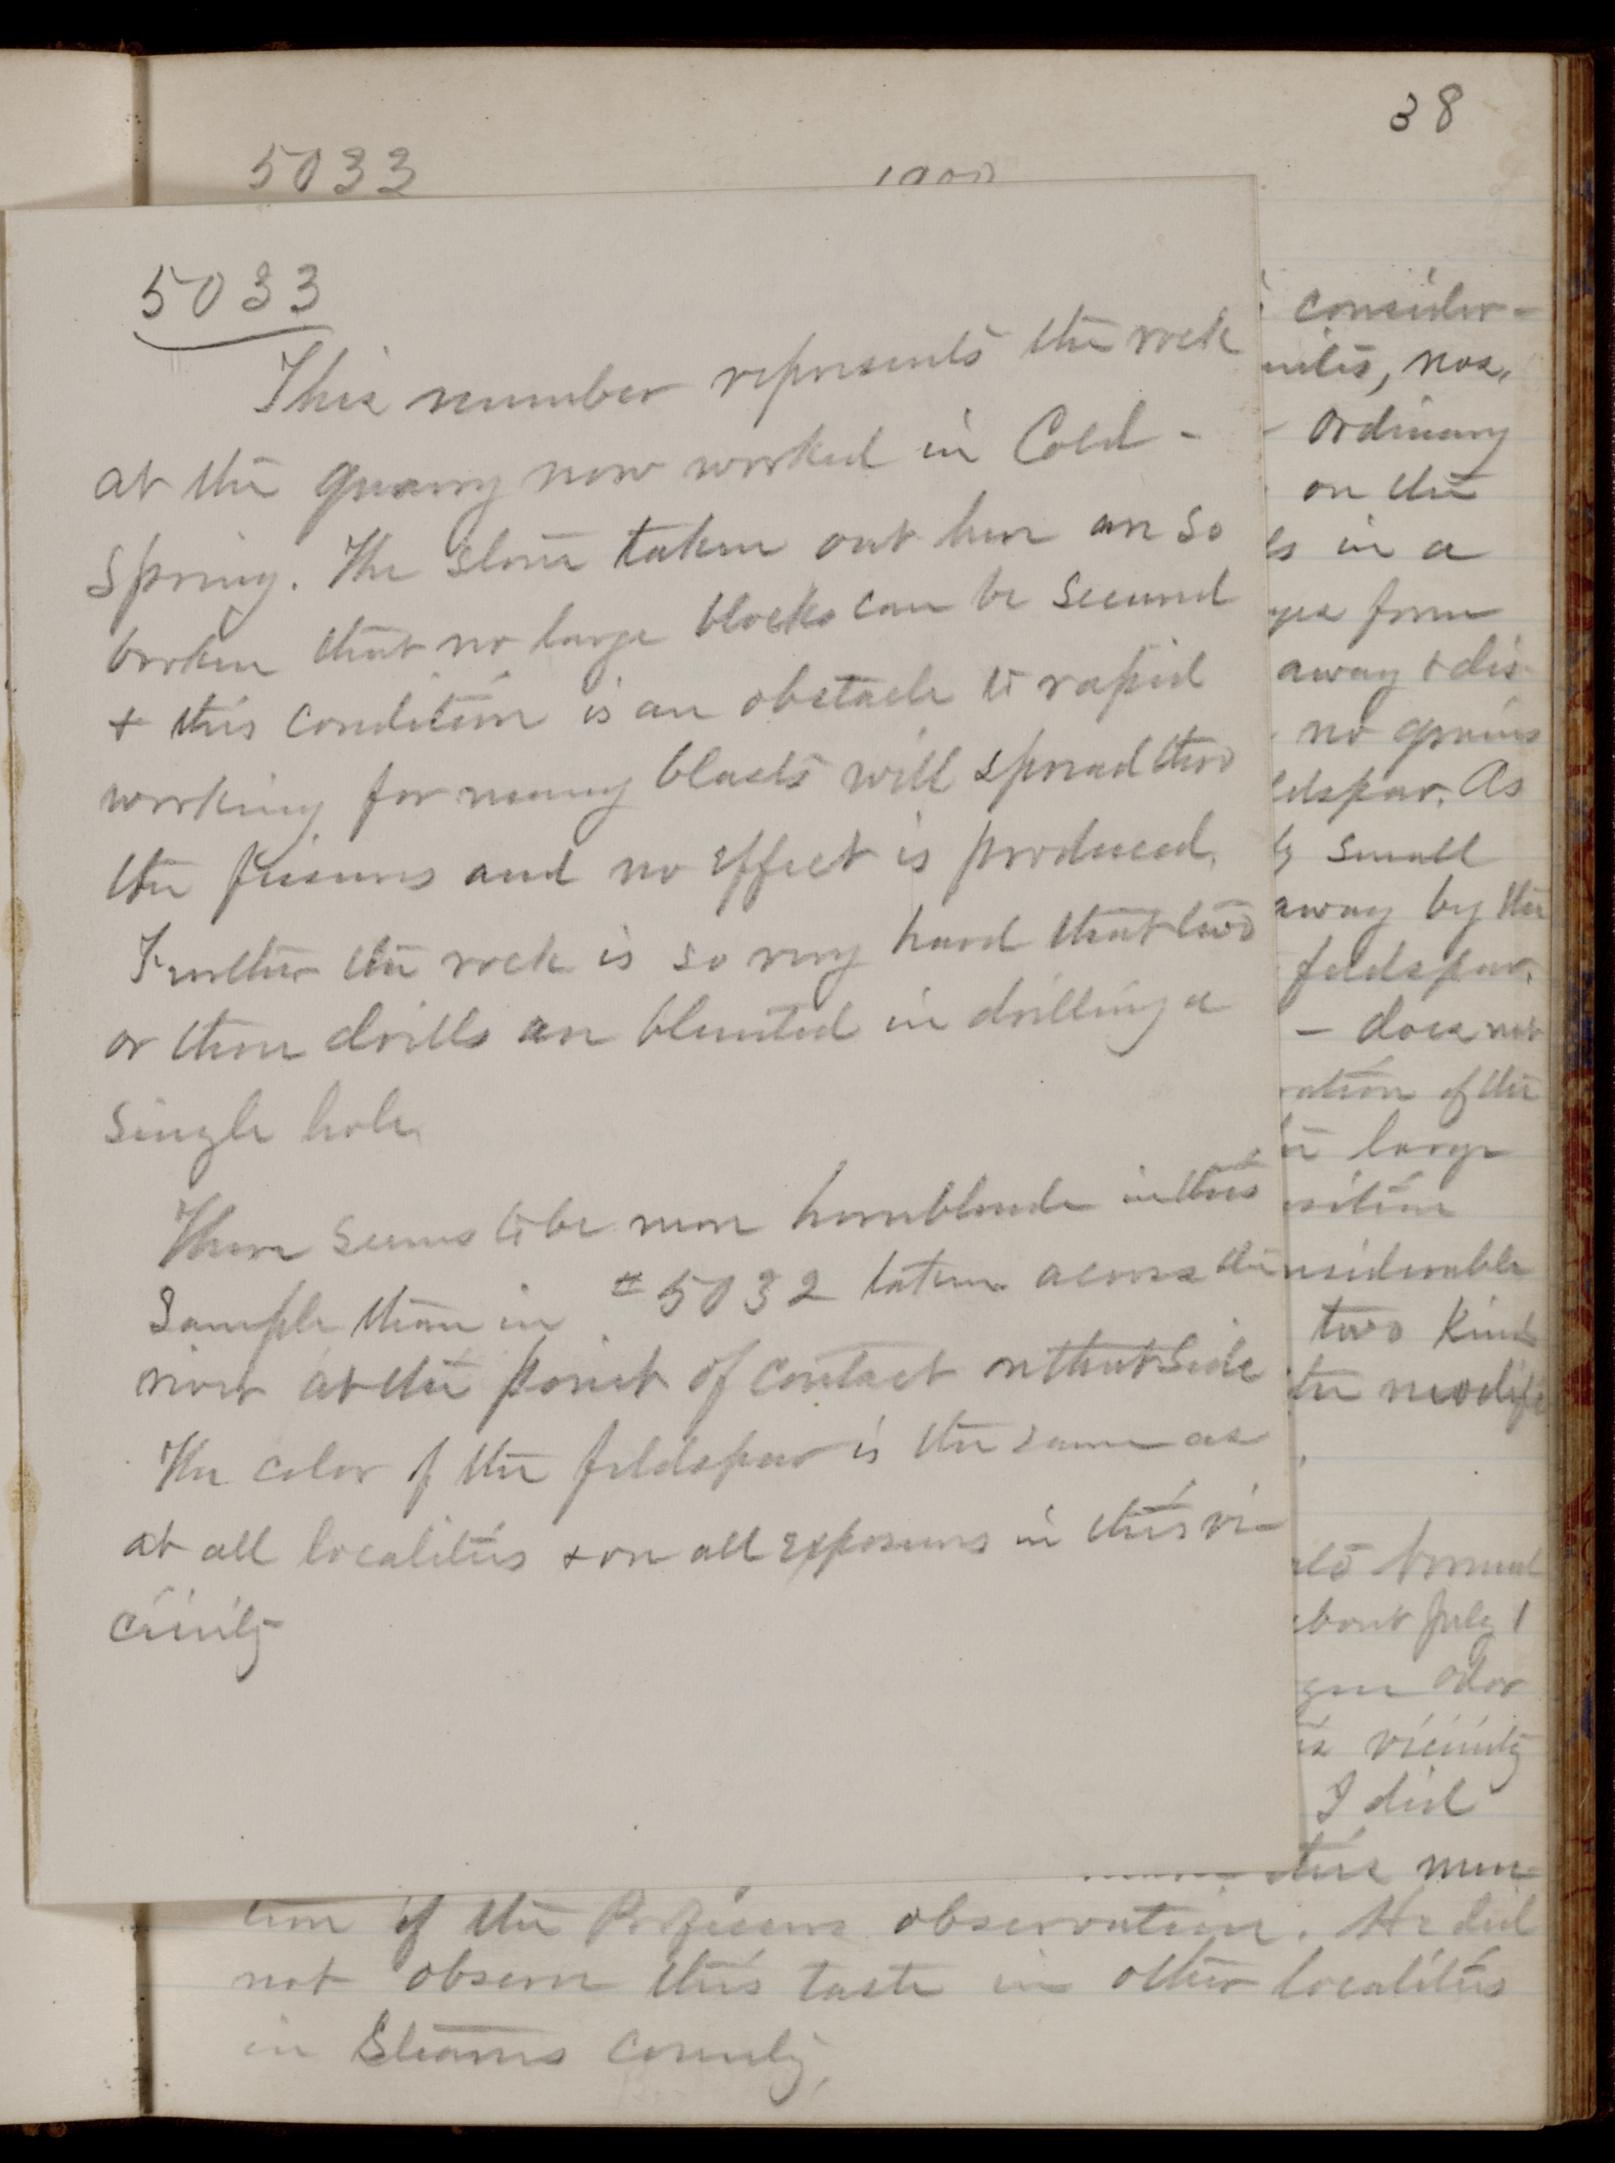 38
5033
1900
5033
This number represents the rock
at the quarry now worked in Cold-
spring. The stone taken out here are so
broken that no large blocks can be secured
+ this condition is an obstacle to rapid
working for many blasts will spread thro
the fissures and no effect is produced.
Further the rock is so very hard that two
or three drills are blunted in drilling a
single hole.
There seems to be more hornblende in this
sample than in #5032 taken across the
river at the point of contact on that side
The color of the feldspar is the same as
at all localities + on all exposures in this vi-
cinity
consider-
nites, nos.
ordinary
on the
ls in a
ges form
away + dis-
no grains
ldspar. As
ly small
away by the
feldspar.
- does not
ration of the
large
osition
nsiderable
two kinds
the modifi
about July 1
gen odor
is vicinity
I did
this men-
tion of the Professors observation. He did
not observe this taste in other localities
in Stearns county.